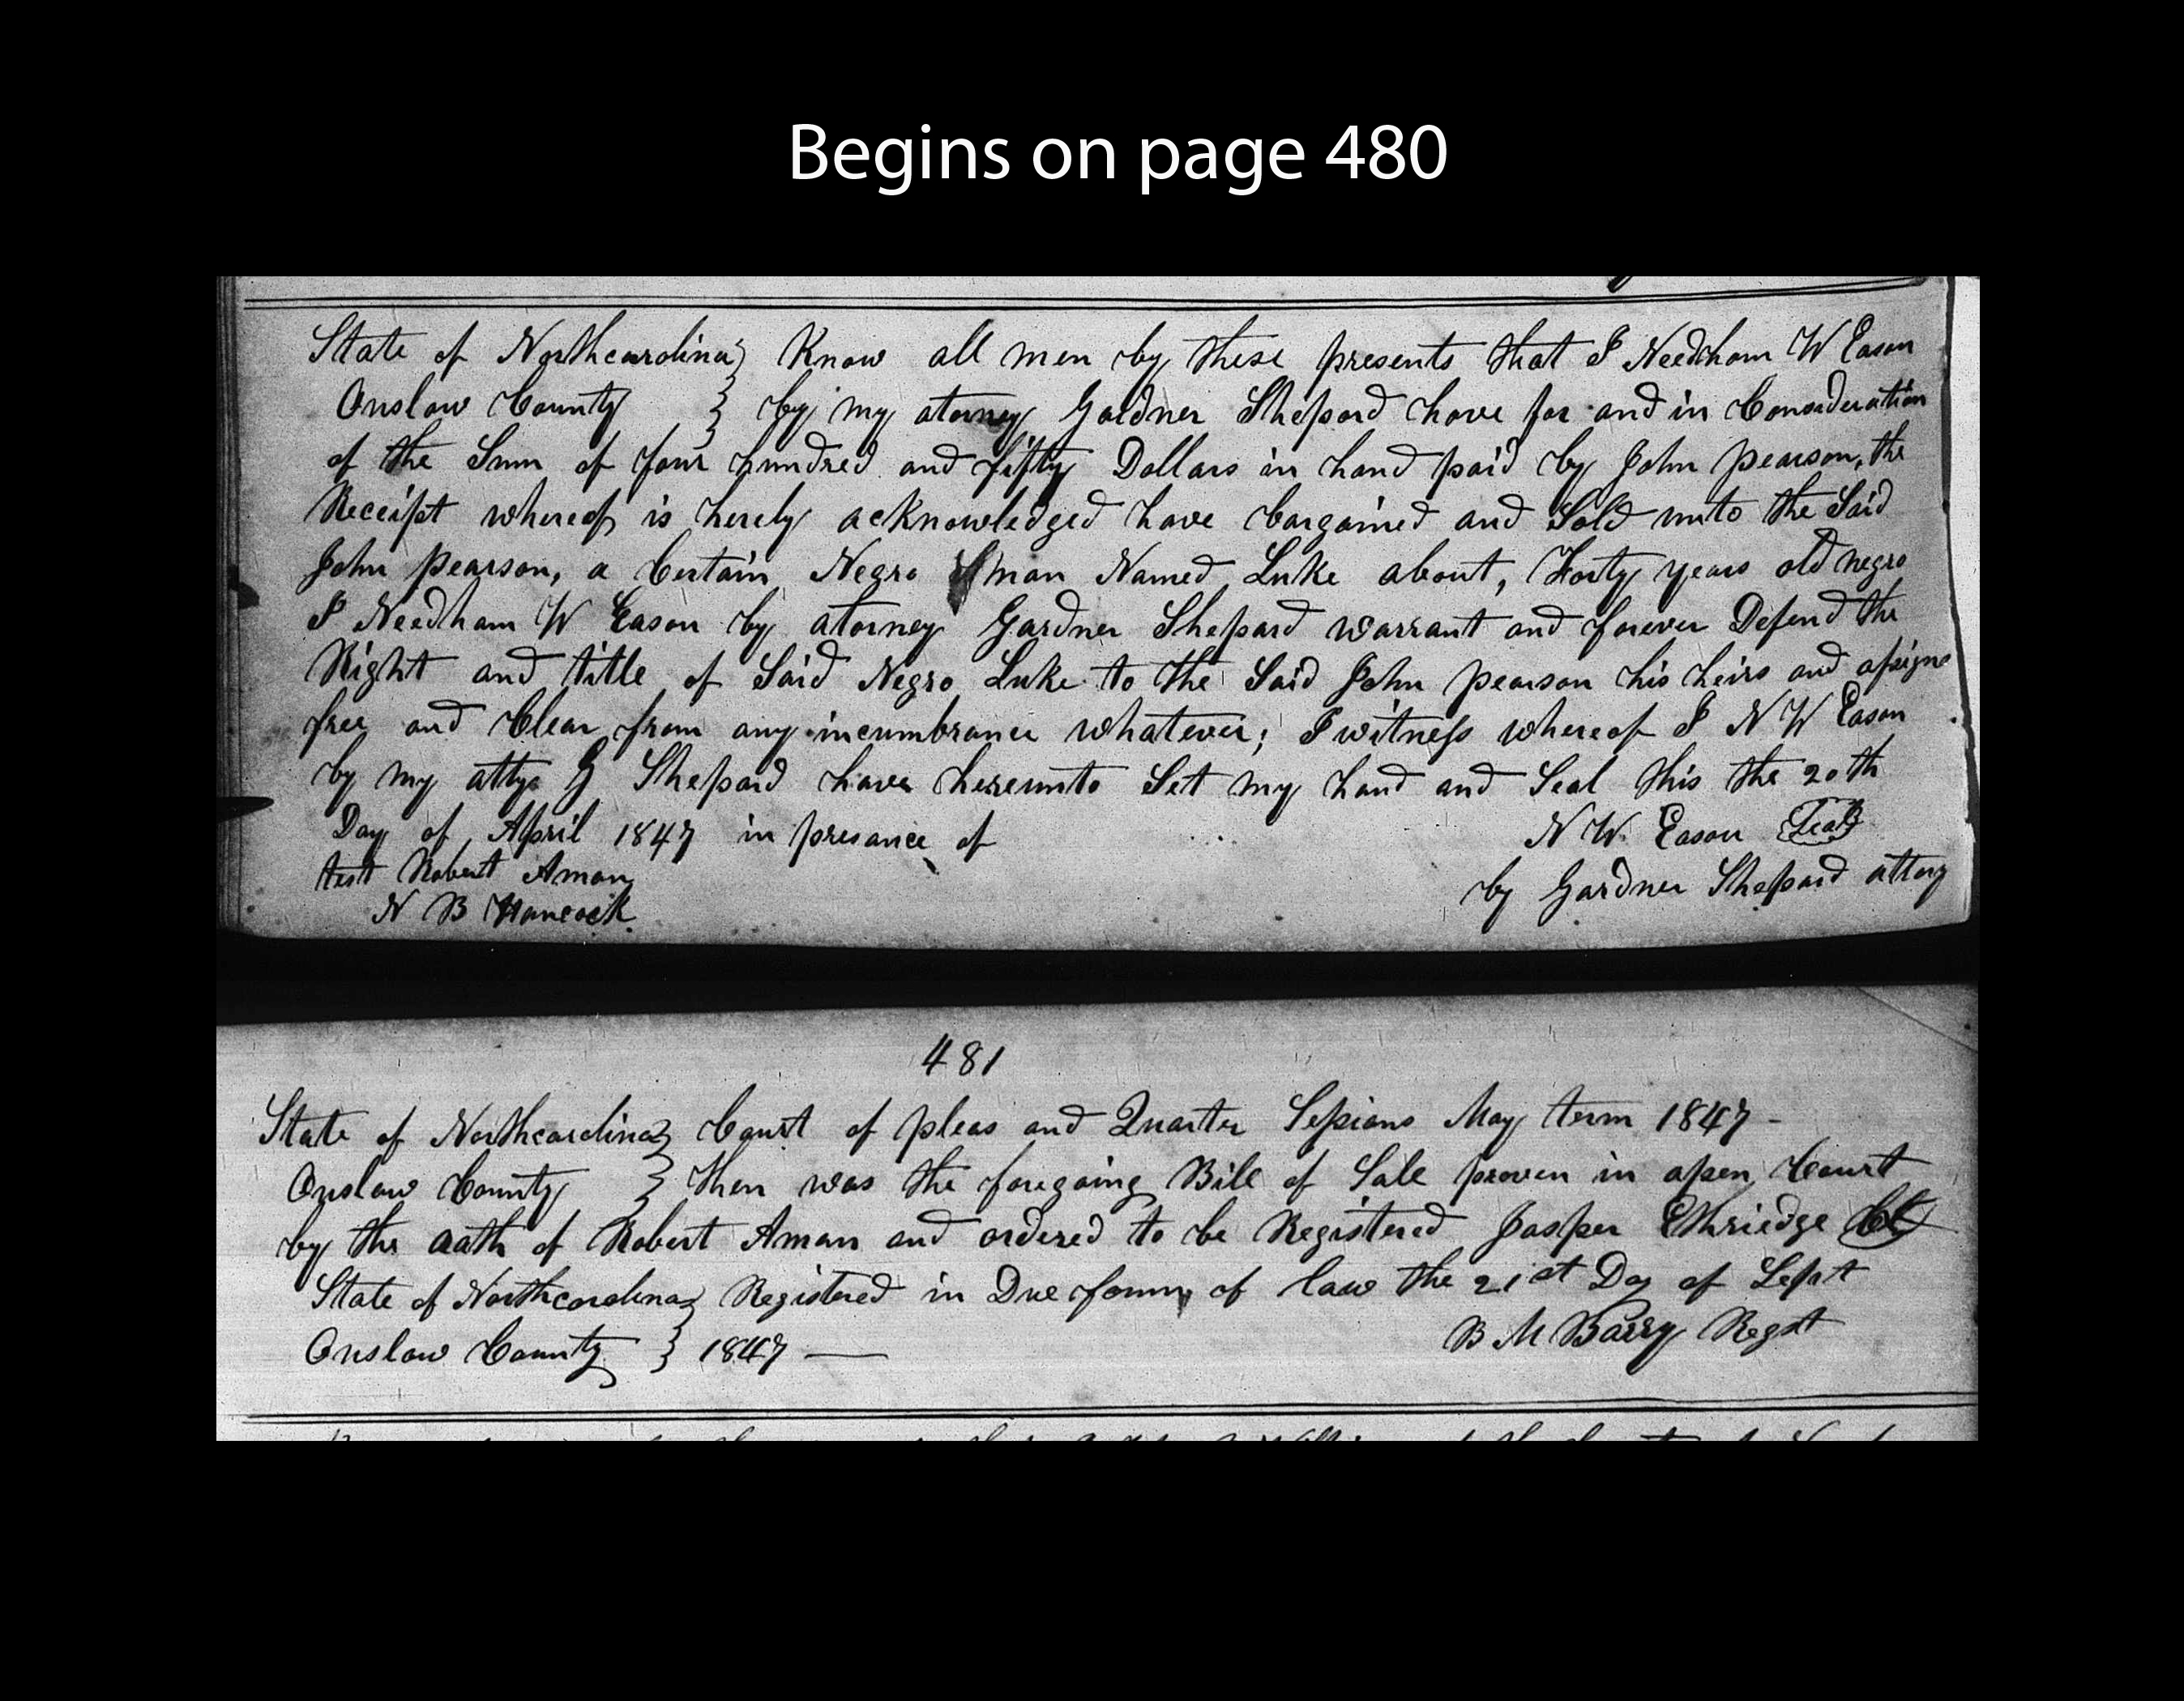 Begins on page 480
State of Northcarolina } Know all men by these presents that I Needham W Eason
Onslow County } by my atorney Gardner Shepard have for and in Consideration
of the Sum of four hundred and fifty Dollars in hand paid by John Pearson, the
Receipt whereof is herely acknowledged have bargained and Sold unto the Said
John Pearson, a Certain Negro man Named Luke about, Forty years old negro
I Needham W Eason by atorney Gardner Shepard warrant and forever Defend the
Right and title of Said Negro Luke to the Said John Pearson his heirs and assigns
free and Clear from any incumbrance whatever; I witness whereof I N W Eason
by my atty G Shepard have hereunto Set my hand and Seal this the 20th
Day of April 1847 in presance of
N W. Eason Seal
test Robert Aman
by Gardner Shepard attory
N B Hancock.
481
State of Northcarolina } Court of pleas and Quarter Sessions May term 1847 -
Onslow County } then was the foregoing Bill of Sale proven in open Court
by the oath of Robert Aman and ordered to be Registered Jasper Ethriedge Clk
State of Northcarolina } Registered in Due form of law the 21st Day of Sept
Onslow County } 1847 —
B M Barry Regst